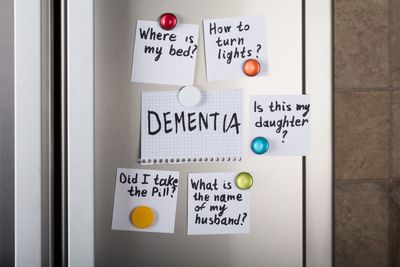 Where is
my bed?
How to
turn
lights?
DEMENTIA
Is this my
daughter
?
Did I take
the Pill?
What is
the name
of my
husband?